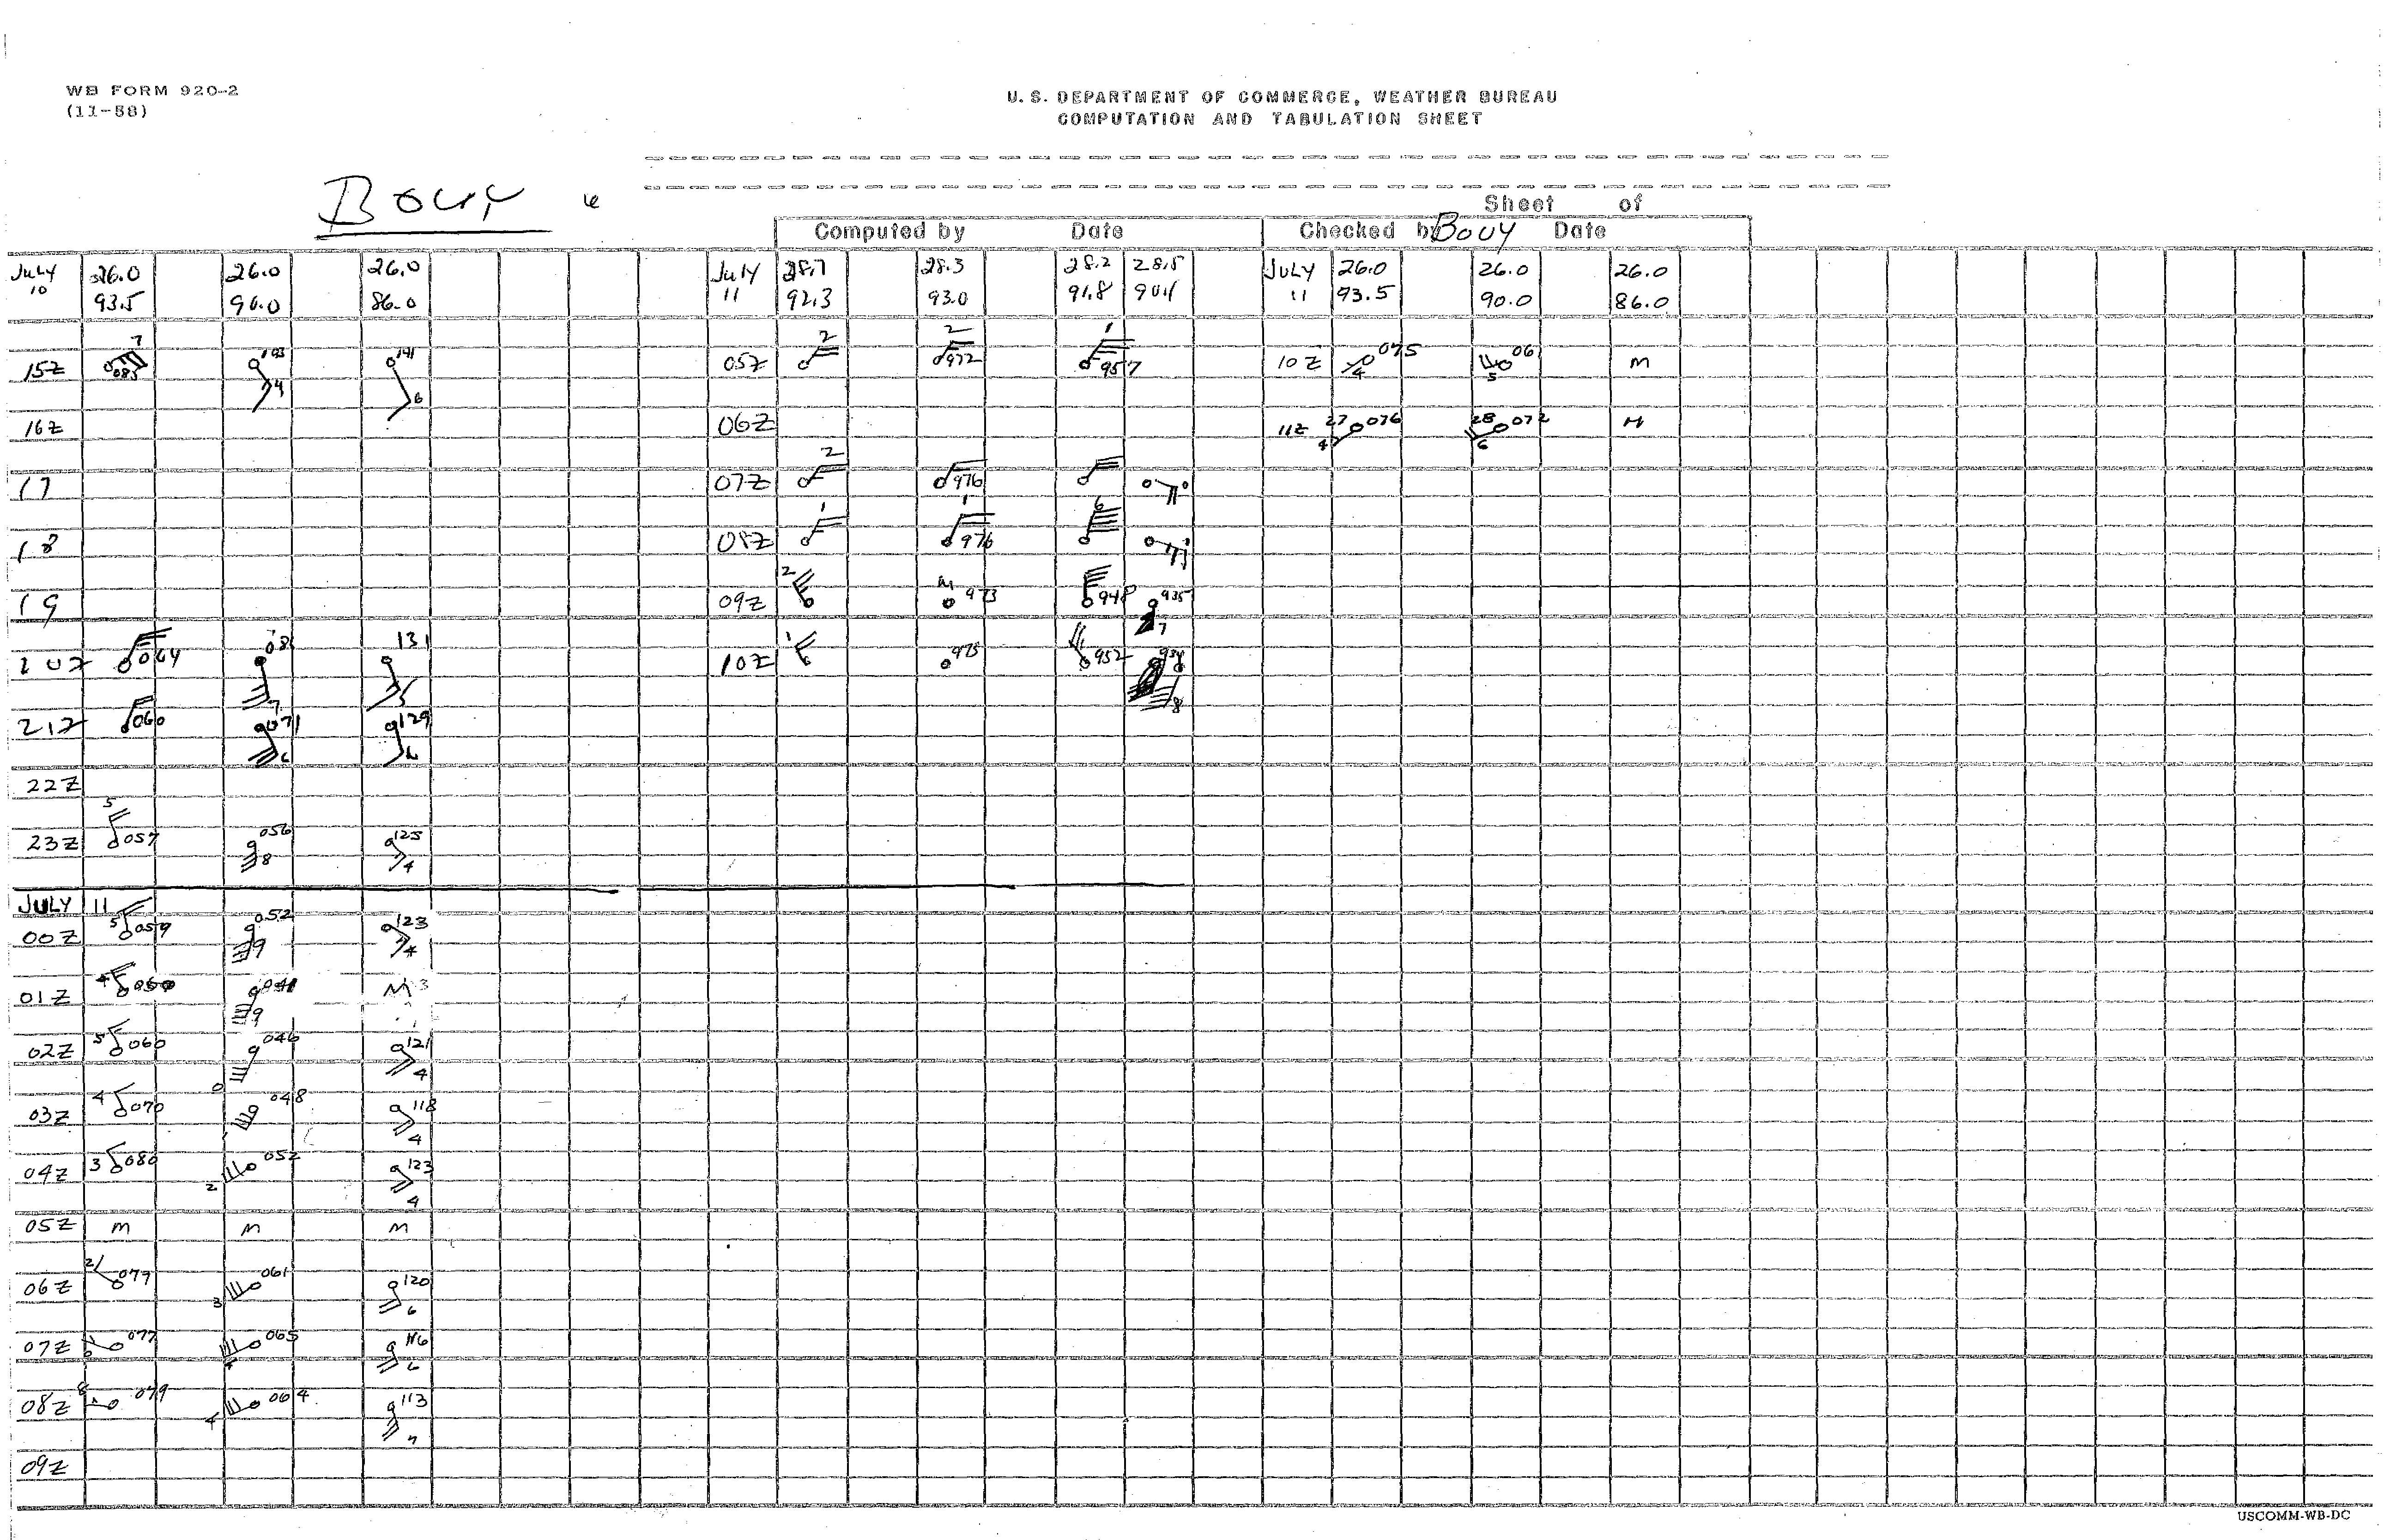 WB FORM 920-2
(11-58)
U. S. DEPARTMENT OF COMMERCE, WEATHER BUREAU
COMPUTATION AND TABULATION SHEET
Bouy
Sheet of
Computed by Date Checked by Bouy Date
July 10 26.0 26.0 26.0 July 11 28.7 28.3 28.2 28.5 July 11 26.0 26.0 26.0
93.5 90.0 86.0 92.3 93.0 91.8 90.1 93.5 90.0 86.0
15Z 7 085 143 4 141 6 05Z 2 2 972 1 957 10Z 4 075 5 06 M
16Z 06Z 11Z 27 076 4 28 072 6 M
17 07Z 2 976 0
18 08Z 1 1 976 6
19 09Z 2 M 973 948 935 7
20Z 064 08 7 131 5 10Z 1 975 952 8
21Z 060 071 6 129 6
22Z
23Z 5 057 056 8 125 4
JULY 11
00Z 5 059 052 9 123 4
01Z 4 050 9 M 3
02Z 5 060 046 0 121 4
03Z 4 070 048 118 4
04Z 3 080 052 2 123 4
05Z M M M
06Z 2 077 061 3 120 6
07Z 077 065 116 6
08Z 8 079 064 4 113 7
09Z
USCOMM-WB-DC